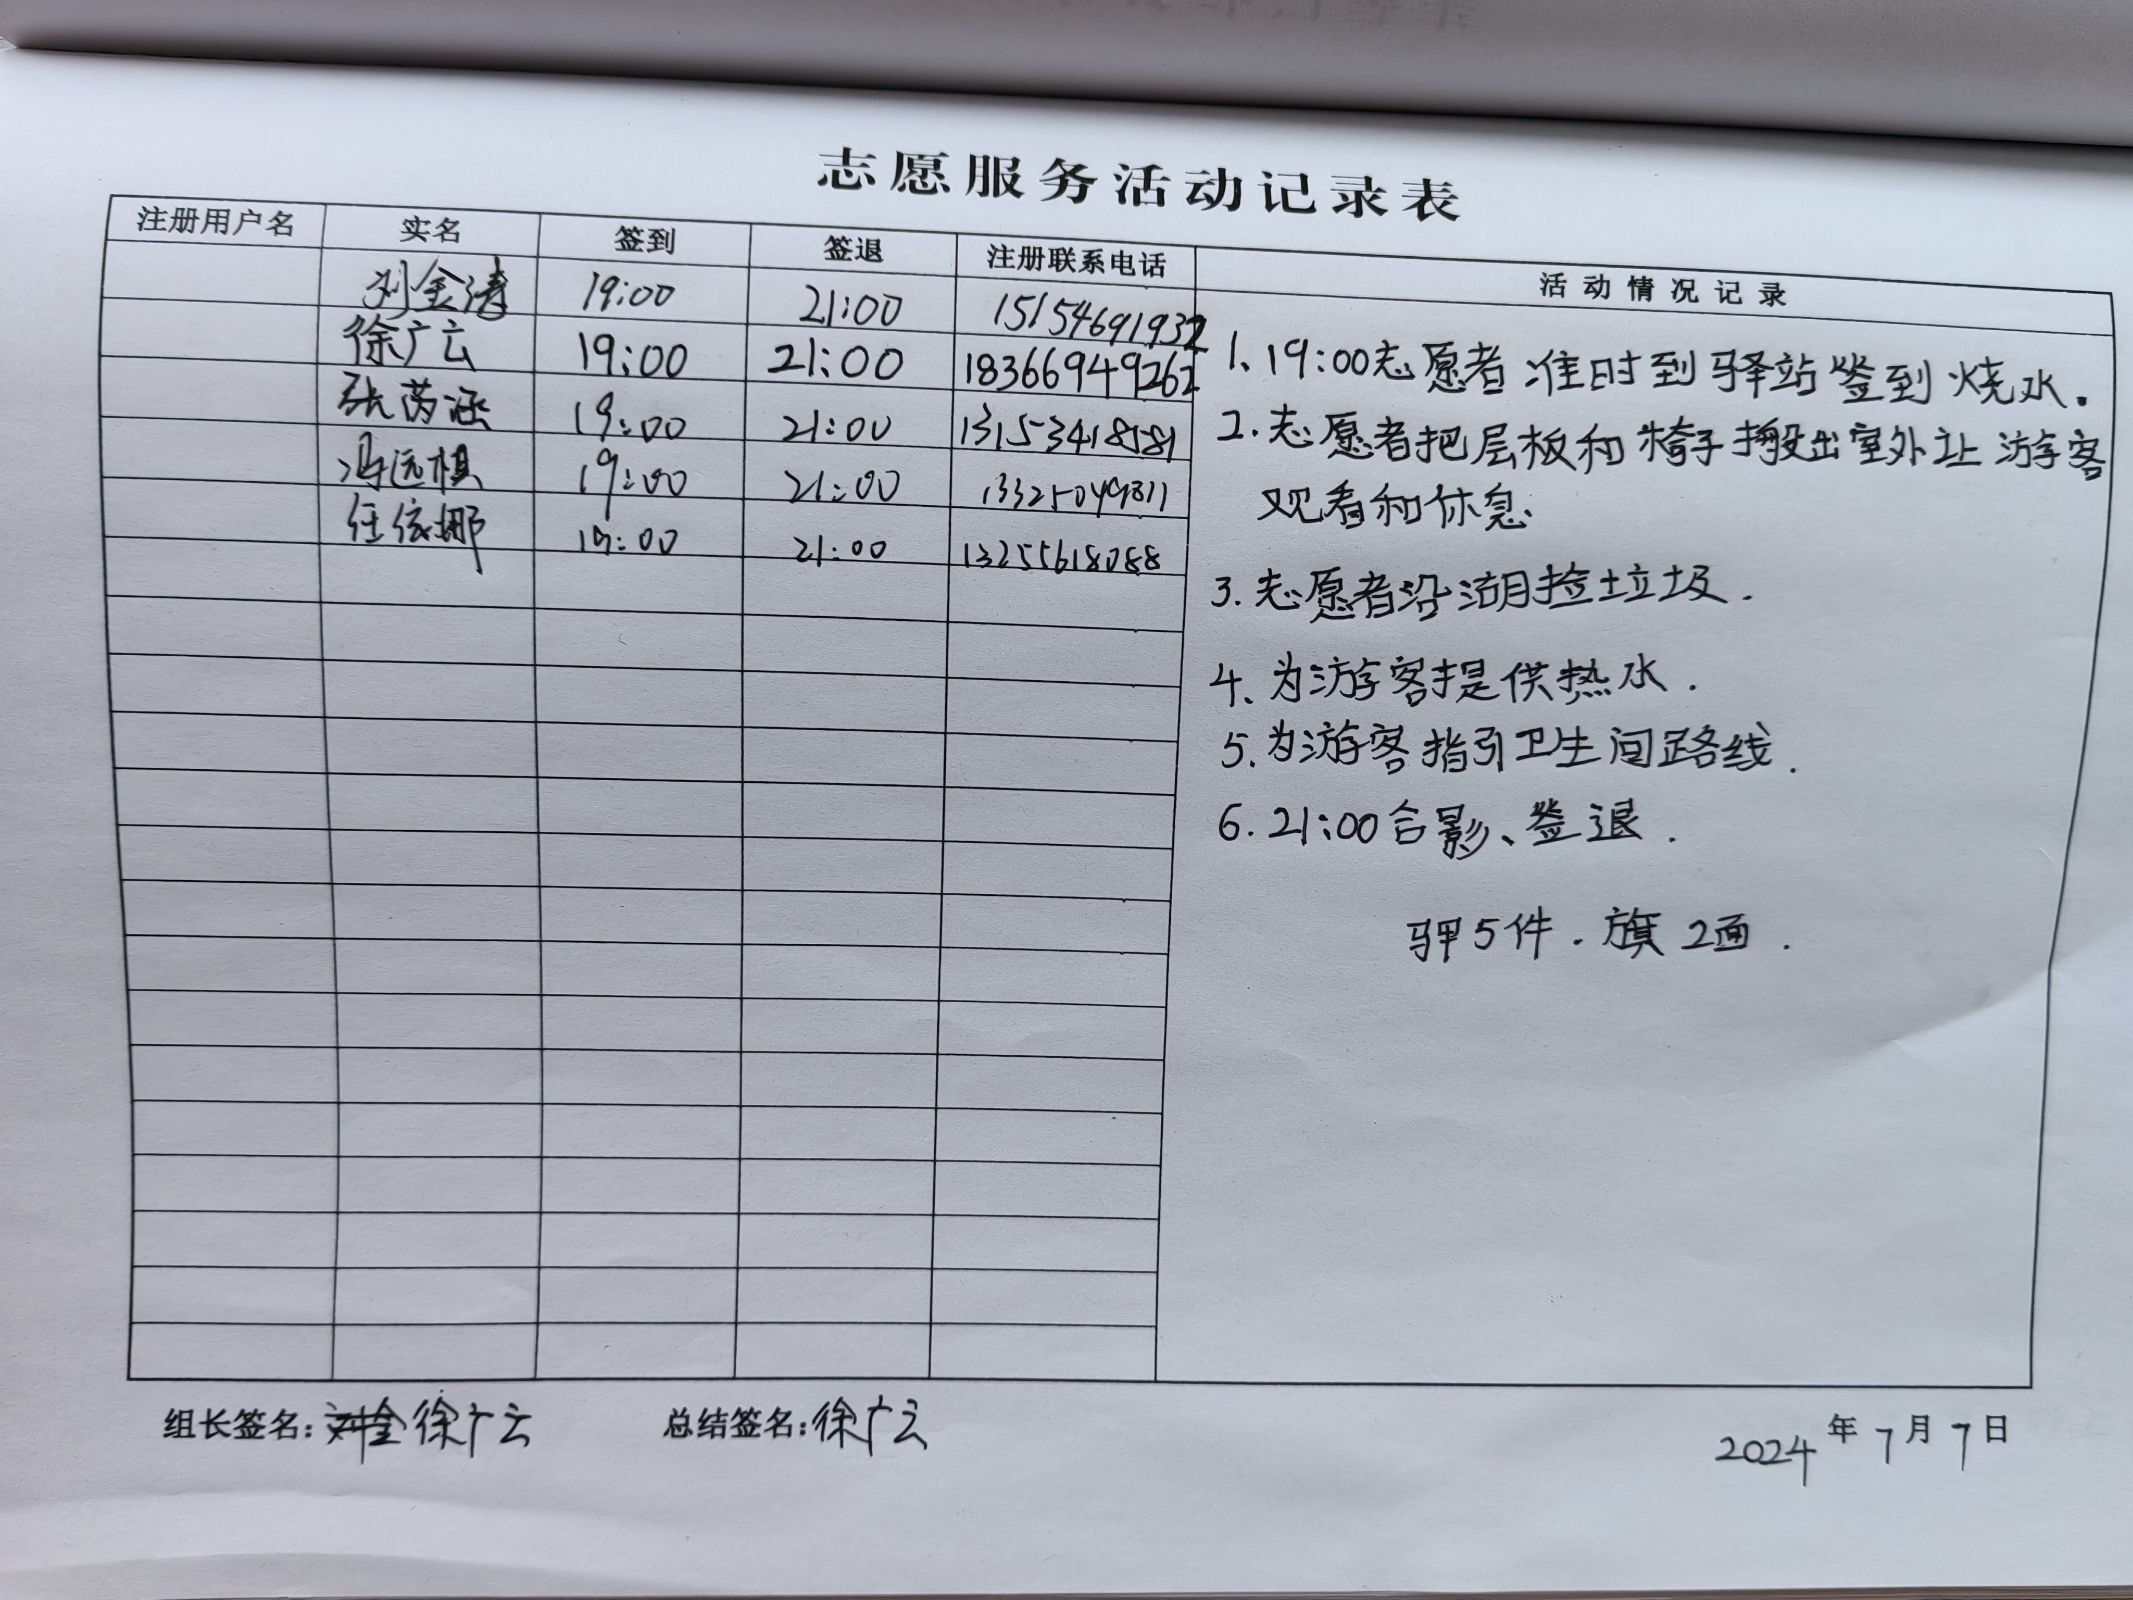 志愿服务活动记录表
注册用户名 实名 签到 签退 注册联系电话 活动情况记录
刘金涛 19:00 21:00 15154691932
徐广云 19:00 21:00 18366949262
张芮涵 19:00 21:00 13153418581
冯远棋 19:00 21:00 13325049811
任依娜 19:00 21:00 13255618088
1、19:00志愿者准时到驿站签到烧水。
2.志愿者把展板和椅子搬出室外让游客
观看和休息.
3.志愿者沿湖捡垃圾.
4、为游客提供热水.
5.为游客指引卫生间路线.
6.21:00合影、签退.
5件.旗2面.
组长签名:徐广云 总结签名:徐广云
2024年7月7日